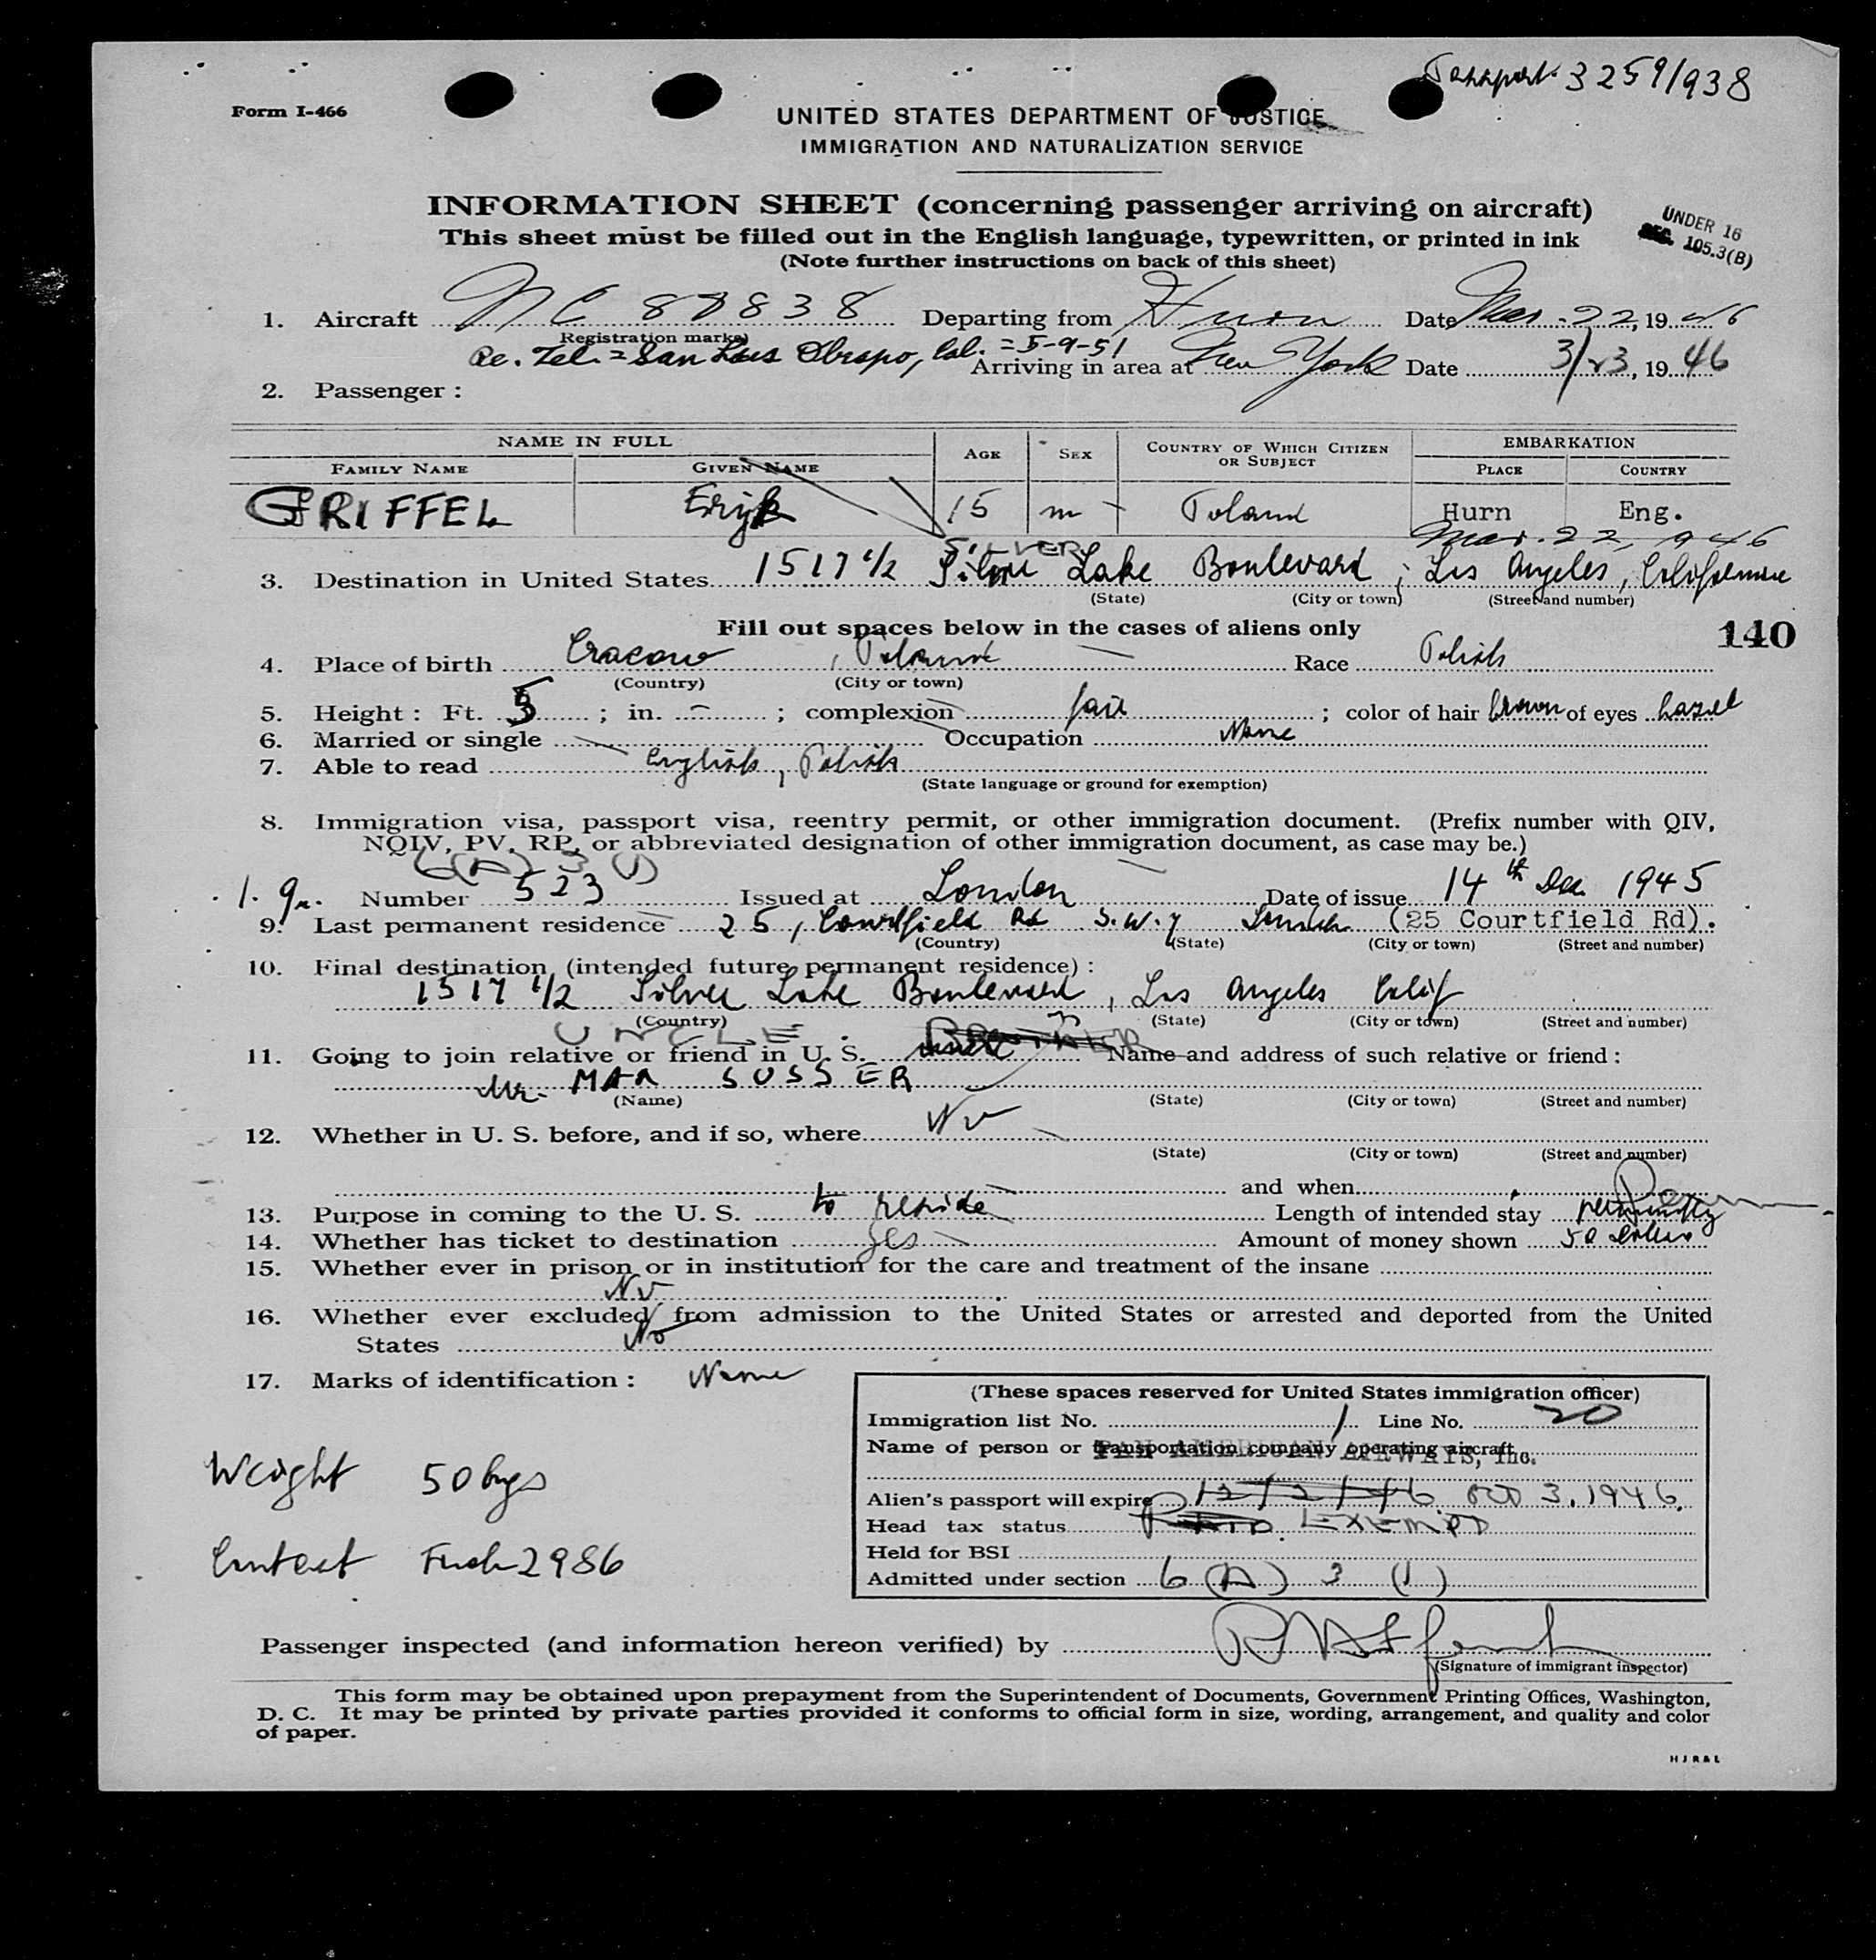 Passport 3259/938
Form I-466
UNITED STATES DEPARTMENT OF JUSTICE
IMMIGRATION AND NATURALIZATION SERVICE
INFORMATION SHEET (concerning passenger arriving on aircraft)
This sheet must be filled out in the English language, typewritten, or printed in ink
(Note further instructions on back of this sheet)
UNDER 16
SEC. 105.3(B)
1. Aircraft NC 88838 Departing from Hurn Date Mar. 22, 1946
Registration marks
Re. Tel. = San Luis Obispo, Cal. = 5-9-51
Arriving in area at New York Date 3/23, 1946
2. Passenger :
NAME IN FULL AGE SEX COUNTRY OF WHICH CITIZEN OR SUBJECT EMBARKATION
FAMILY NAME GIVEN NAME PLACE COUNTRY
GRIFFEL Eryk 15 m Poland Hurn Eng.
Mar. 22, 1946
SILVER
3. Destination in United States 1517 1/2 Lake Boulevard; Los Angeles, California
(State) (City or town) (Street and number)
Fill out spaces below in the cases of aliens only
140
4. Place of birth Cracow, Poland Race Polish
(Country) (City or town)
5. Height : Ft. 5 ; in. - ; complexion fair ; color of hair brown of eyes hazel
6. Married or single Occupation None
7. Able to read English, Polish
(State language or ground for exemption)
8. Immigration visa, passport visa, reentry permit, or other immigration document. (Prefix number with QIV,
NQIV, PV, RP, or abbreviated designation of other immigration document, as case may be.)
6(A) 3 (1)
Number 523 Issued at London Date of issue 14th Dec. 1945
9. Last permanent residence 25, Courtfield Rd S.W.7 London (25 Courtfield Rd).
(Country) (State) (City or town) (Street and number)
10. Final destination (intended future permanent residence) :
1517 1/2 Silver Lake Boulevard, Los Angeles Calif
(Country) (State) (City or town) (Street and number)
UNCLE.
11. Going to join relative or friend in U. S. Name and address of such relative or friend :
Mr. MAX SUSSER
(Name) (State) (City or town) (Street and number)
12. Whether in U. S. before, and if so, where No
(State) (City or town) (Street and number)
and when
13. Purpose in coming to the U. S. to reside Length of intended stay permanently
14. Whether has ticket to destination yes Amount of money shown 50 dollars
15. Whether ever in prison or in institution for the care and treatment of the insane
No
16. Whether ever excluded from admission to the United States or arrested and deported from the United
States No
17. Marks of identification : None
(These spaces reserved for United States immigration officer)
Immigration list No. 1 Line No. 20
Name of person or transportation company operating aircraft
PAN AMERICAN AIRWAYS, Inc.
Alien's passport will expire 12/2/46 OCT 3, 1946.
Head tax status PAID. EXEMPT
Held for BSI
Admitted under section 6 (A) 3 (1)
Weight 50 kgs
2986
Passenger inspected (and information hereon verified) by
(Signature of immigrant inspector)
This form may be obtained upon prepayment from the Superintendent of Documents, Government Printing Offices, Washington,
D. C. It may be printed by private parties provided it conforms to official form in size, wording, arrangement, and quality and color
of paper.
HJR&L